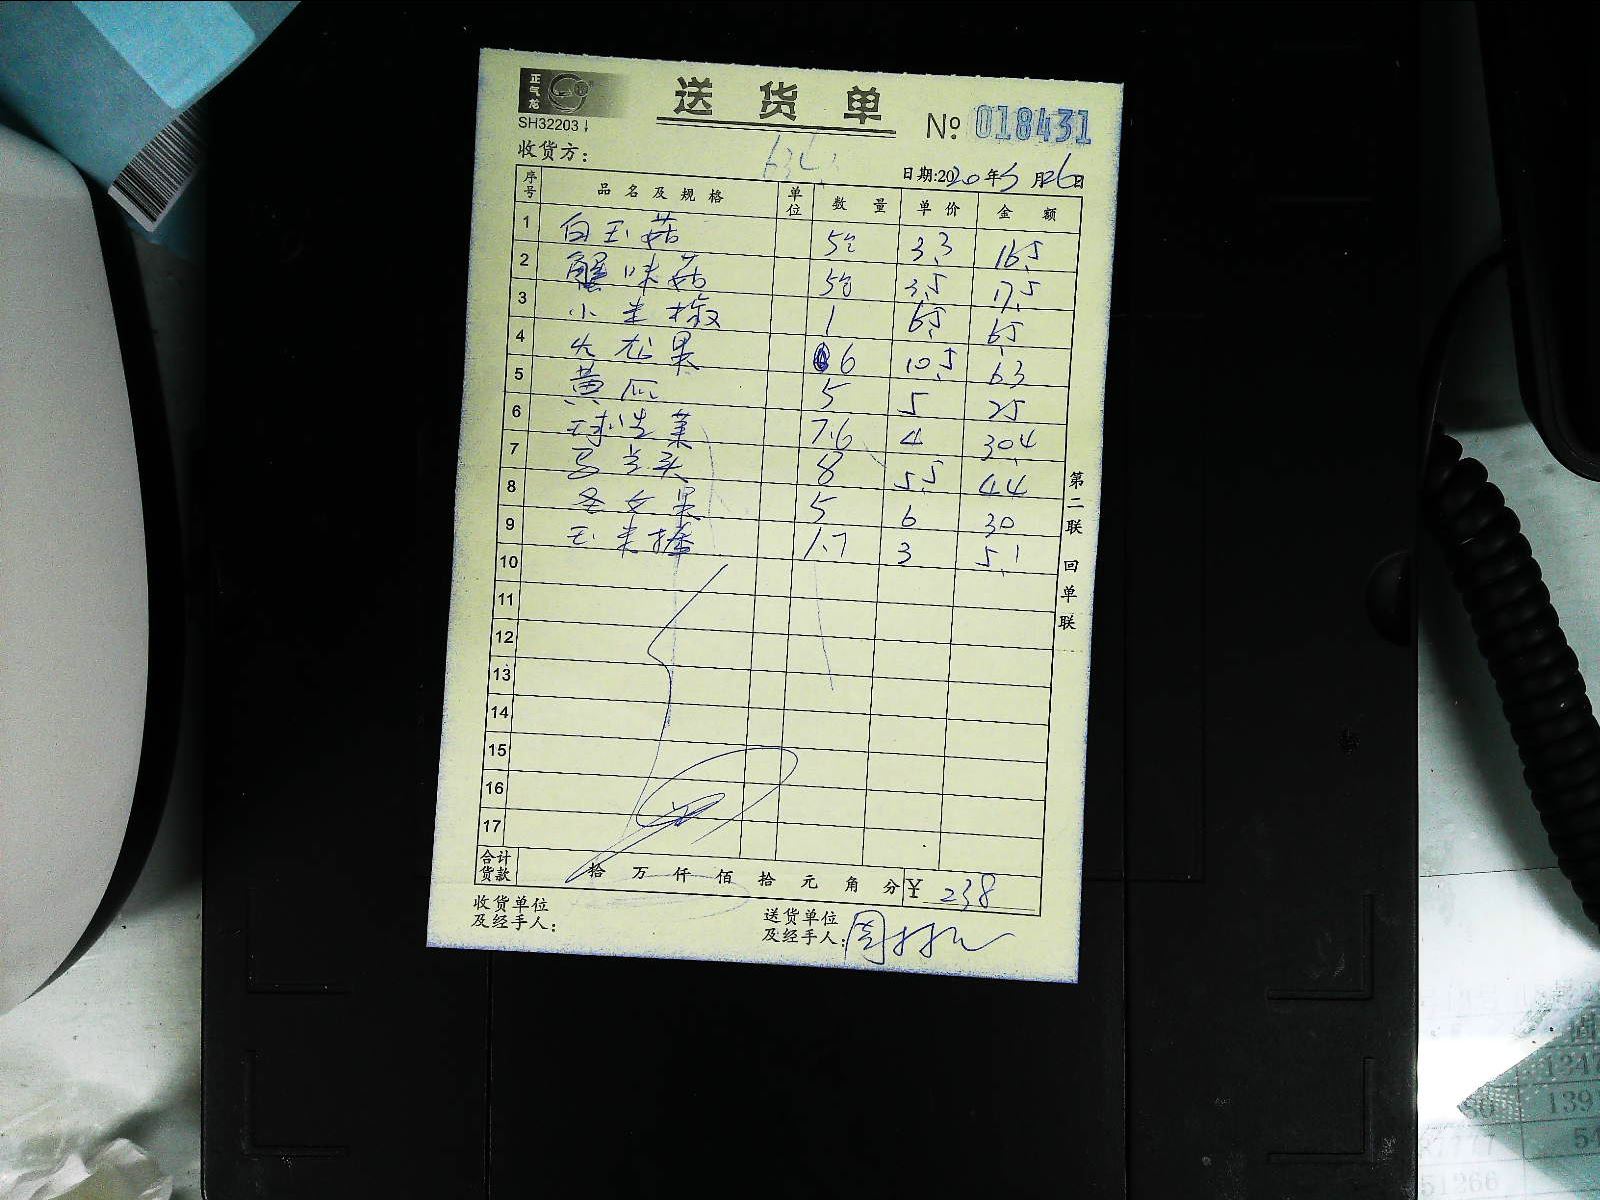 正气龙
送货单
SH32203
№ 018431
收货方:
日期:2020年5月26日
序号 品名及规格 单位 数量 单价 金额
1 白玉菇 5包 3.3 16.5
2 蟹味菇 5包 3.5 17.5
3 小米椒 1 6.5 6.5
4 火龙果 6 10.5 63
5 黄瓜 5 5 25
6 球生菜 7.6 4 30.4
7 马兰头 8 5.5 44
8 圣女果 5 6 30
9 玉米棒 1.7 3 5.1
10
11
12
13
14
15
16
17
合计货款 拾 万 仟 佰 拾 元 角 分 ¥ 238
收货单位及经手人:
送货单位及经手人:
第二联 回单联
1347
139
54
7777
51266